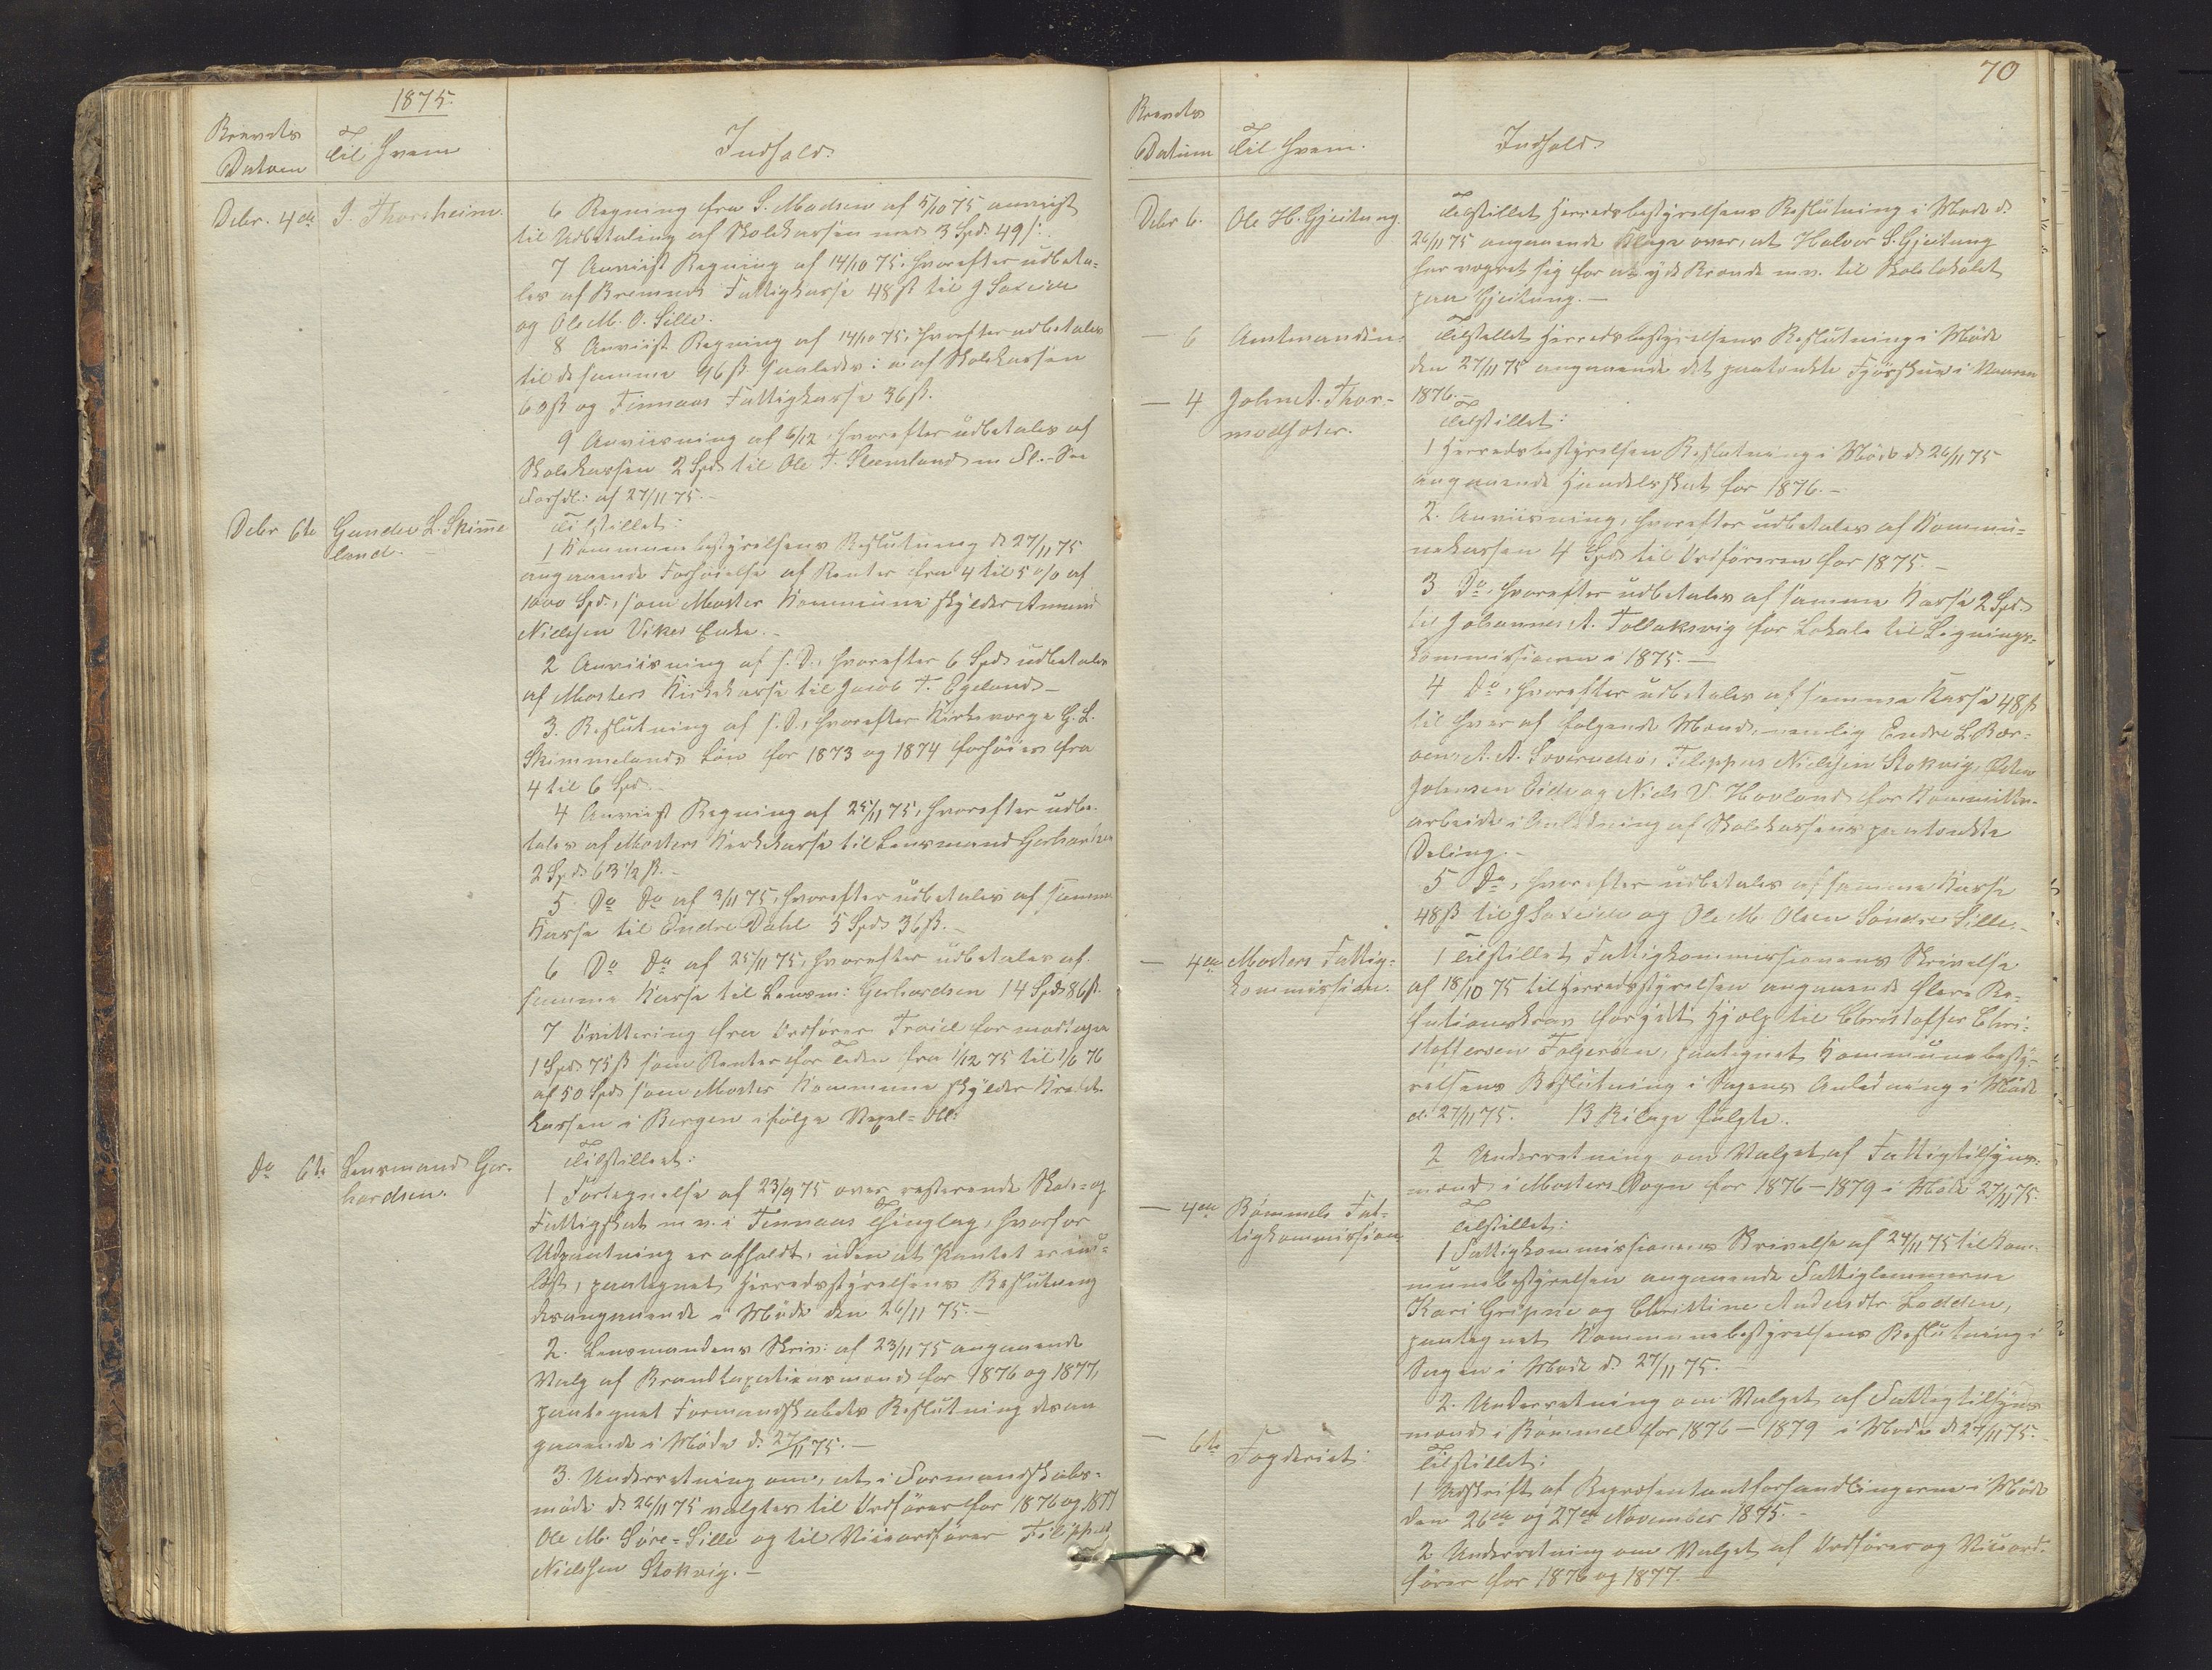 1875.
Brevets
Datum
Til Hvem
Indhold.
Debr. 4de
I. Thorsheim.
6 Regning fra S. Madsen af 5/10 75 anvist
til Udbetaling af Skolekassen med 3 Spd. 49 ß.
7 Anvist Regning af 14/10 75, hvorefter udbeta-
les af Bremnes Fattigkasse 48 ß til J Saxeide
og Ole M. O. Sille.
8 Anvist Regning af 14/10 75, hvorefter udbetales
til de samme 96 ß saaledes: a af Skolekassen
60 ß og Finnaas Fattigkasse 36 ß.
9 Anviisning af 6/12, hvorefter udbetales af
Skolekassen 2 Spd til Ole T. m Fl.
af 27/11 75.-
Debr 6te
Gunder L. Skimme
land.
Tilstillet:
1 Kommunebestyrelsens Beslutning d. 27/11 75
angaaende Forhøielse af Renter fra 4 til 5 o/o af
1000 Spd., som Moster Kommune skylder Amund
Nielssen Vikes Enke.-
2 Anviisning af s. D., hvorefter 6 Spd udbetales
af Mosters Kirkekasse til Jacob T. Egeland.-
3. Beslutning af s. D., hvorefter Kirkeværge G. L.
Skimmelands Løn for 1873 og 1874 forhøies fra
4 til 6 Spd.
4 Anvist Regning af 25/11 75, hvorefter udbe-
tales af Mosters Kirkekasse til Lensmand Gerhardsen
2 Spd. 63 1/2 ß.-
5. Do Do af 3/11 75, hvorefter udbetales af samme
Kasse til Endre Dahl 5 Spd 36 ß.-
6 Do Do af 25/11 75, hvorefter udbetales af
samme Kasse til Lensm: Gerhardsen 14 Spd 86 ß.
7 Kvittering fra Ordfører for modtagen
1 Spd 75 ß som Renter for Tiden fra 1/12 75 til 1/6 76
af 50 Spd som Moster Kommune skylder
kassen i Bergen ifølge Vexel-Obl:
Do 6te
Lensmand Ger-
hardsen.
Tilstillet:
1 Fortegnelse af 23/9 75 over resterende Skole- og
Fattigskat m. v. i Finnaas Thinglag, hvorfor
Udpantning er afholdt, uden at Pantet er ind-
løst, paategnet Herredsstyrelsens Beslutning
desangaaende i Møde den 26/11 75.-
2. Lensmandens Skriv: af 23/11 75 angaaende
Valg af Brandtaxationsmænd for 1876 og 1877,
paategnet Formandskabets Beslutning desan
gaaende i Møde d. 27/11 75.-
3. Underretning om, at i Formandskabs-
møde d. 26/11 75 valgtes til Ordfører for 1876 og 1877
Ole M. Søre-Sille og til Viceordfører Filippus
Nielssen Stokvig.-
70
Brevets
Datum
Til Hvem.
Indhold
Debr 6.
Ole H. Gjeitung.
Tilstillet Herredsbestyrelsens Beslutning i Møde d.
26/11 75 angaaende Klage over, at Halvor S. Gjeitung
har vægret sig for at yde Brænde m.v. til Skolelokalet
paa Gjeitung.-
- 6
Amtmanden.
Tilstillet Herredsbestyrelsens Beslutning i Møde
den 27/11 75 angaaende det paatænkte i Vaaren
1876.-
- 4
John A. Thor-
modsæter.
Tilstillet:
1 Herredsbestyrelsen Beslutning i Møde d. 26/11 75
angaaende Handelsskat for 1876.-
2. Anviisning, hvorefter udbetales af Kommu-
nekassen 4 Spd til Ordføreren for 1875.-
3 Do, hvorefter udbetales af samme Kasse 2 Spd.
til Johannes A. Tollaksvig for Lokale til Lignings-
kommissionen i 1875.-
4 Do, hvorefter udbetales af samme Kasse 48 ß
til hver af følgende Mænd, nemlig Endre L. Bær-
øen, A. A. Filippus Nielssen Stokvig, Østen
Johnsen Eide og Niels V Hovland for Kommitte-
arbeide i Anledning af Skolekassens paatænkte
Deling.-
5 Do, hvorefter udbetales af samme Kasse
48 ß til J Saxeide og Ole M. Olsen Søndre Sille.-
- 4de
Mosters Fattig-
kommission.
1 Tilstillet Fattigkommissionens Skrivelse
af 18/10 75 til Herredsstyrelsen angaaende flere Re-
futionskrav for ydet Hjælp til Christoffer Chri-
stoffersen Folgerøen, paategnet Kommunebesty-
relsens Beslutning i Sagens Anledning i Møde
d. 27/11 75. 13 Bilage fulgte.
2 Underretning om Valget af Fattigtilsyns-
mænd i Mosters Sogn for 1876-1879 i Møde 27/11 75.
- 4de
Bømmels Fat-
tigkommission
Tilstillet:
1 Fattigkommissionens Skrivelse af 24/11 75 til Kom-
munebestyrelsen angaaende Fattiglemmerne
Kari Grøpne og Christine Andersdtr Lodden,
paategnet Kommunebestyrelsens Beslutning i
Sagen i Møde d. 27/11 75.-
2. Underretning om Valget af Fattigtilsyns
mænd i Bømmel for 1876-1879 i Møde d 27/11 75.-
- 6te
Fogderiet:
Tilstillet:
1 Udskrift af Repræsentantforhandlingerne i Møde
den 26de og 27de November 1875.-
2 Underretning om Valget af Ordfører og Viceord-
fører for 1876 og 1877.-